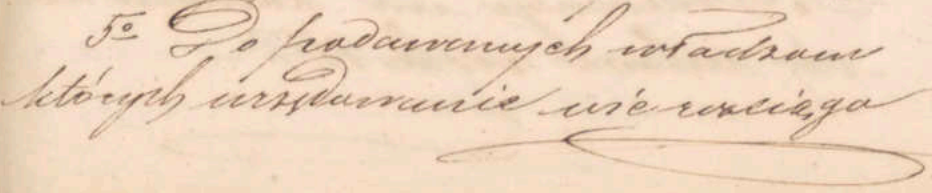 5º Do podawanych władzom
których urzędowanie nie rozciąga